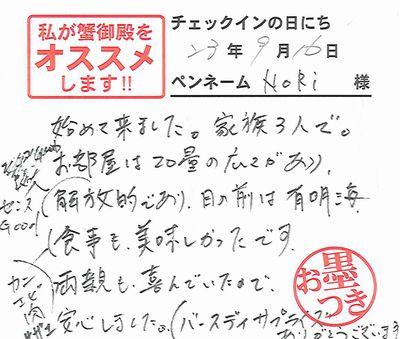 私が蟹御殿を
オススメ
します!!
チェックインの日にち
23年9月16日
ペンネーム HORI 様
始めて来ました。家族3人で。
お部屋は20畳の広さがあり、
解放的であり、目の前は有明海
センス
Good
食事も、美味しかったです。
カニ、
エビ、
肉
両親も、喜んでいたので、
安心しました。(バースディサプライズ
ありがとうございます
お墨つき